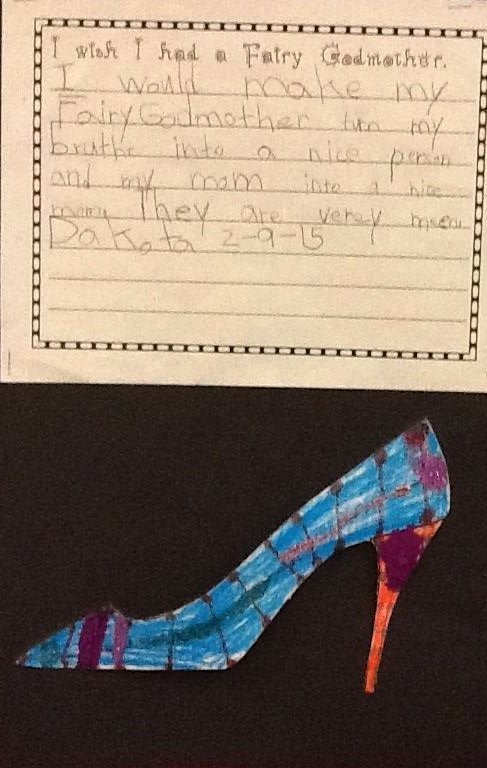 I wish I had a Fairy Godmother.
I would make my
Fairy Godmother turn my
bruthr into a nice person
and my mom into a nice
mom. They are verey meen
Dakota 2-9-15